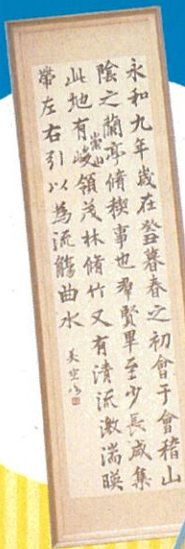 永和九年歲在癸丑暮春之初會于會稽山
陰之蘭亭脩稧事也羣賢畢至少長咸集
此地有崇山峻領茂林脩竹又有清流激湍暎
帶左右引以為流觴曲水